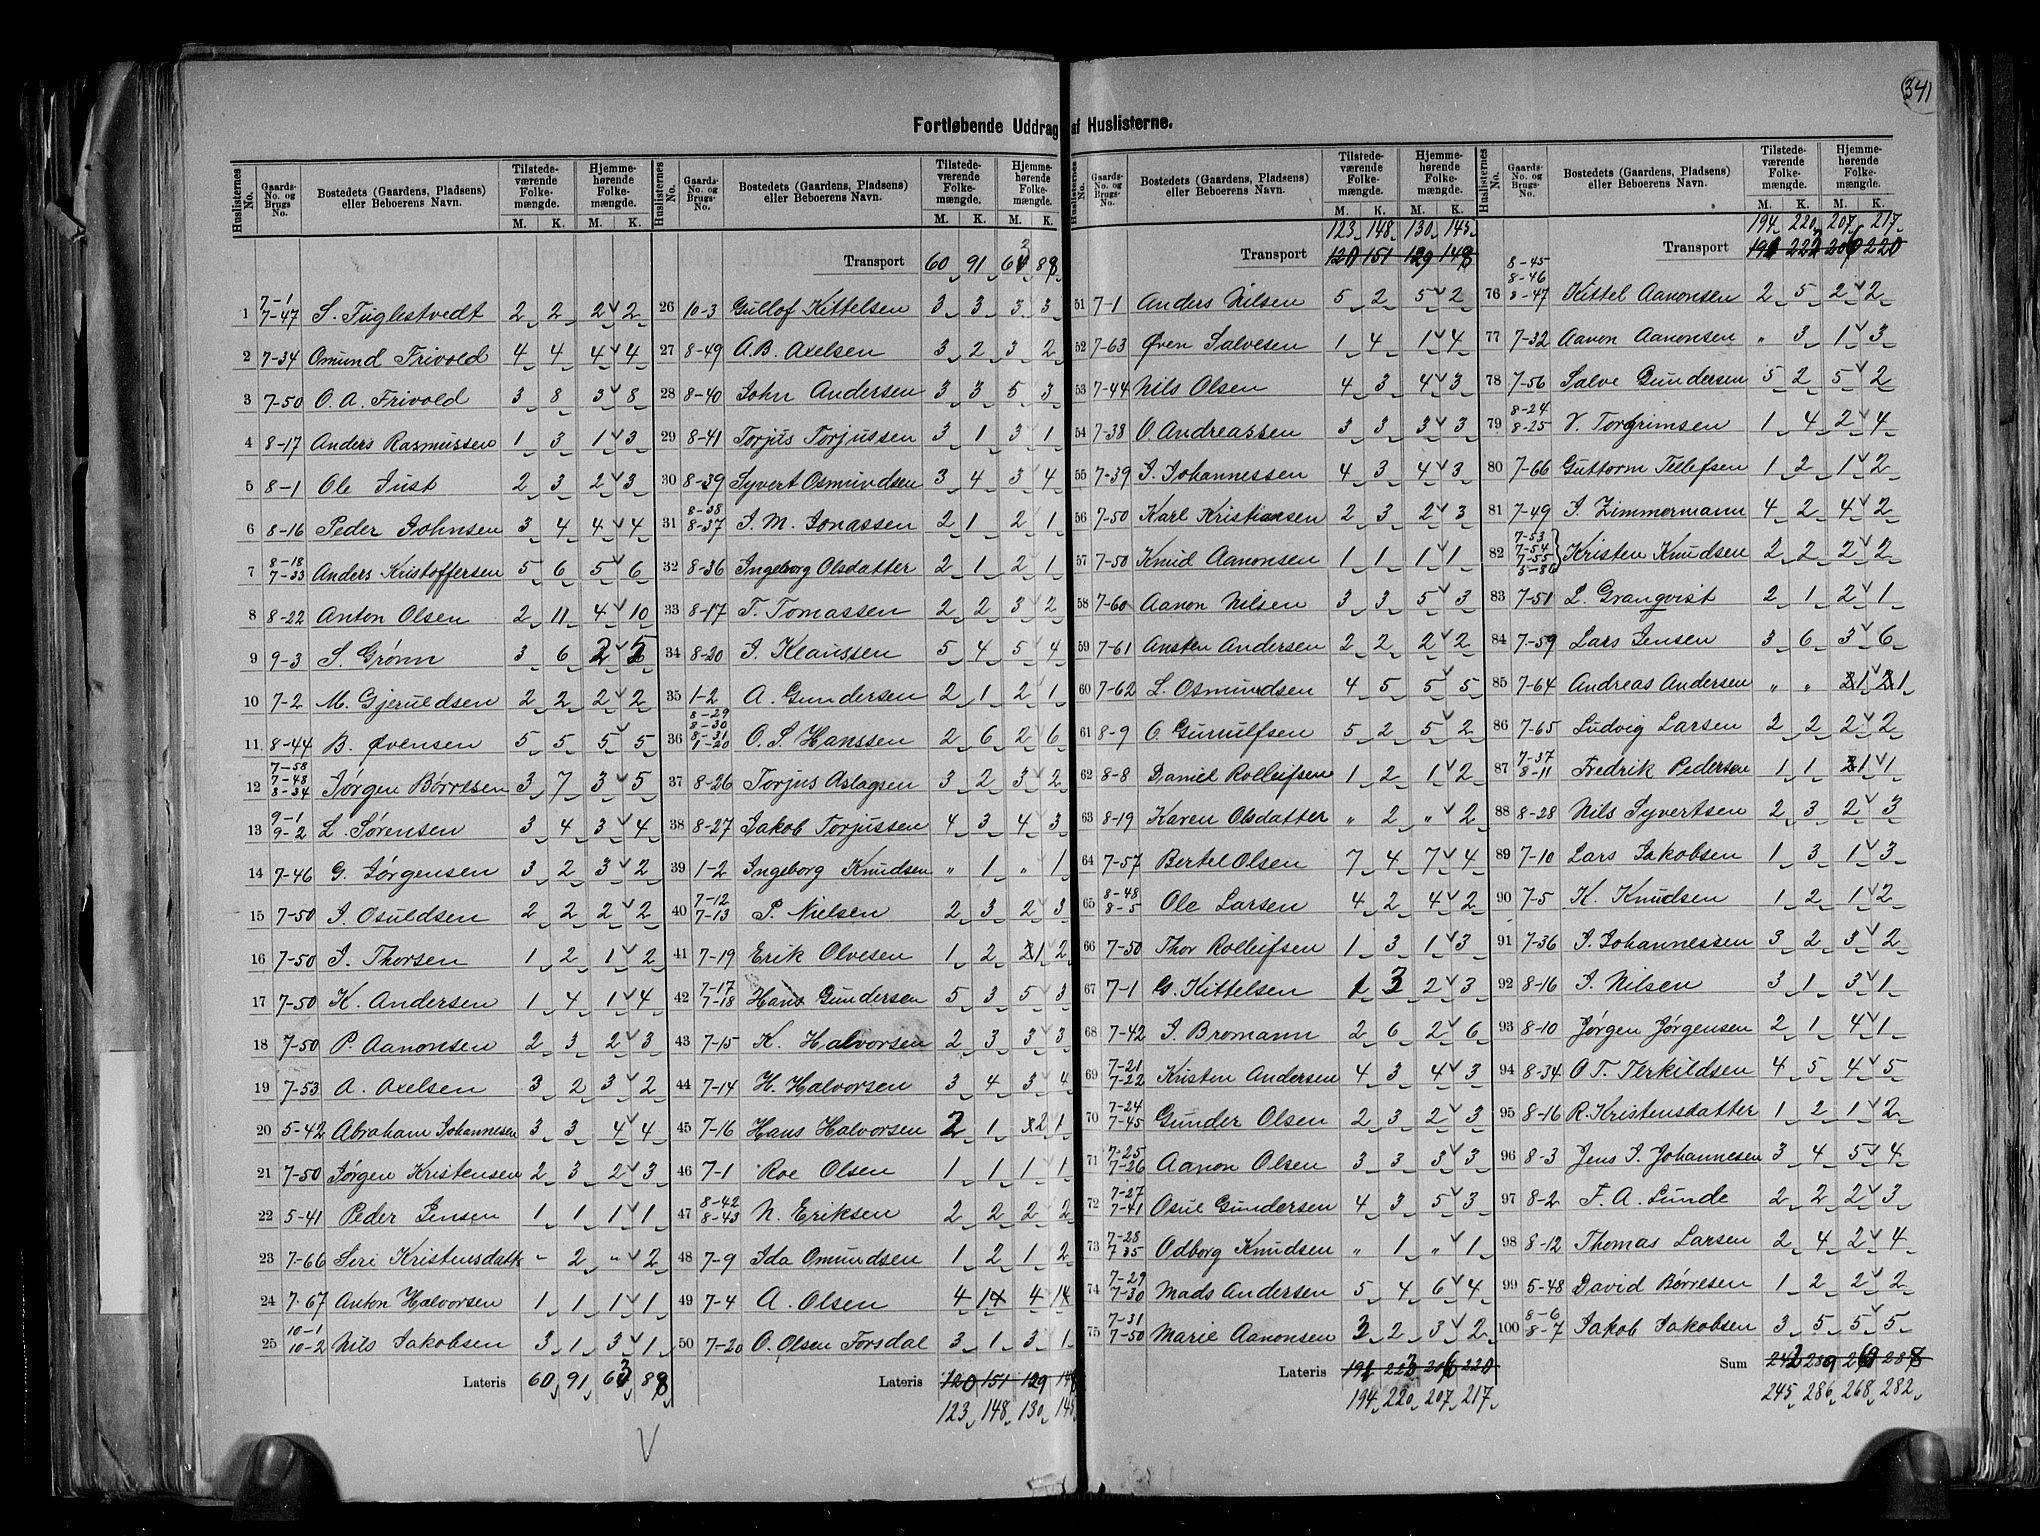 341
Fortløbende Uddrag af Huslisterne.
Huslisternes No. Gaards-No. og Brugs No. Bostedets (Gaardens, Pladsens) eller Beboerens Navn. Tilstede-værende Folke-mængde. M. K. Hjemme-hørende Folke-mængde. M. K.
1 7-1 7-47 S. Fuglestvedt 2 2 2 2
2 7-34 Omund Frivold 4 4 4 4
3 7-50 O. A. Frivold 3 8 3 8
4 8-17 Anders Rasmussen 1 3 1 3
5 8-1 Ole Just 2 3 2 3
6 8-16 Peder Johnsen 3 4 4 4
7 8-18 7-33 Anders Kristoffersen 5 6 5 6
8 8-22 Anton Olsen 2 11 4 10
9 9-3 S. Grønn 3 6 2 5
10 7-2 M. Gjeruldsen 2 2 2 2
11 8-44 B. Øvensen 5 5 5 5
12 7-58 7-48 8-34 Jørgen Børresen 3 7 3 5
13 9-1 9-2 L. Sørensen 3 4 3 4
14 7-46 G. Jørgensen 3 2 3 2
15 7-50 J. Osuldsen 2 2 2 2
16 7-50 J. Thorsen 1 2 1 2
17 7-50 K. Andersen 1 4 1 4
18 7-50 P. Aanonsen 2 3 2 3
19 7-53 A. Axelsen 3 2 3 2
20 5-42 Abraham Johannesen 3 3 4 4
21 7-50 Jørgen Kristensen 2 3 2 3
22 5-41 Peder Jensen 1 1 1 1
23 7-66 Siri Kristensdatt " 2 " 2
24 7-67 Anton Halvorsen 1 1 1 1
25 10-1 10-2 Nils Jakobsen 3 1 3 1
Lateris 60 91 63 88
Huslisternes No. Gaards-No. og Brugs-No. Bostedets (Gaardens, Pladsens) eller Beboerens Navn. Tilstede-værende Folke-mængde. M. K. Hjemme-hørende Folke-mængde. M. K.
Transport 60 91 63 88
26 10-3 Gullof Kittelsen 3 3 3 3
27 8-49 A. B. Axelsen 3 2 3 2
28 8-40 John Andersen 3 3 5 3
29 8-41 Torjus Torjussen 3 1 3 1
30 8-39 Syvert Osmundsen 3 4 3 4
31 8-38 8-37 J. M. Jonassen 2 1 2 1
32 8-36 Ingeborg Olsdatter 2 1 2 1
33 8-17 T. Tomassen 2 2 3 2
34 8-20 J. Klaussen 5 4 5 4
35 1-2 A. Gundersen 2 1 2 1
36 8-29 8-30 8-31 1-20 O. S. Hanssen 2 6 2 6
37 8-26 Torjus Aslagsen 3 2 3 2
38 8-27 Jakob Torjussen 4 3 4 3
39 1-2 Ingeborg Knudsen " 1 " 1
40 7-12 7-13 P. Nielsen 2 3 2 3
41 7-19 Erik Olvesen 1 2 1 2
42 7-17 7-18 Hans Gundersen 5 3 5 3
43 7-15 K. Halvorsen 2 3 3 3
44 7-14 H. Halvorsen 3 4 3 4
45 7-16 Hans Halvorsen 2 1 2 1
46 7-1 Roe Olsen 1 1 1 1
47 8-42 8-43 N. Eriksen 2 2 2 2
48 7-9 Ida Omundsen 1 2 1 2
49 7-4 A. Olsen 4 1 4 1
50 7-20 O. Olsen Forsdal 3 1 3 1
Lateris 120 151 129 148
123 148 130 145
Huslisternes No. Gaards-No. og Brugs-No. Bostedets (Gaardens, Pladsens) eller Beboerens Navn. Tilstede-værende Folke-mængde. M. K. Hjemme-hørende Folke-mængde. M. K.
123 148 130 145
Transport 120 151 129 148
51 7-1 Anders Nilsen 5 2 5 2
52 7-63 Øven Salvesen 1 4 1 4
53 7-44 Nils Olsen 4 3 4 3
54 7-38 O Andreassen 3 3 3 3
55 7-39 J. Johannessen 4 3 4 3
56 7-50 Karl Kristiansen 2 3 2 3
57 7-50 Knud Aanonsen 1 1 1 1
58 7-60 Aanon Nilsen 3 3 5 3
59 7-61 Ansten Andersen 2 2 2 2
60 7-62 L. Osmundsen 4 5 5 5
61 8-9 O Gunulfsen 5 2 5 2
62 8-8 Daniel Rolleifsen 1 2 1 2
63 8-19 Karen Olsdatter " 2 " 2
64 7-57 Bertel Olsen 7 4 7 4
65 8-48 8-5 Ole Larsen 4 2 4 2
66 7-50 Thor Rolleifsen 1 3 1 3
67 7-1 G. Kittelsen 1 3 2 3
68 7-42 J. Bromann 2 6 2 6
69 7-21 7-22 Kristen Andersen 4 3 4 3
70 7-24 7-45 Gunder Olsen 2 3 2 3
71 7-25 7-26 Aanon Olsen 3 3 3 3
72 7-27 7-41 Osul Gundersen 4 3 5 3
73 7-28 7-35 Odborg Knudsen " 1 " 1
74 7-29 7-30 Mads Andersen 5 4 6 4
75 7-31 7-50 Marie Aanonsen 3 2 3 2
Lateris 191 223 206 220
194 220 207 217
Huslisternes No. Gaards-No. og Brugs-No. Bostedets (Gaardens, Pladsens) eller Beboerens Navn. Tilstede-værende Folke-mængde. M. K. Hjemme-hørende Folke-mængde. M. K.
194 220 207 217
Transport 191 223 206 220
76 8-45 8-46 8-47 Kittel Aanonsen 2 5 2 2
77 7-32 Aanon Aanonsen " 3 1 3
78 7-56 Salve Gundersen 5 2 5 2
79 8-24 8-25 V. Torgrimsen 1 4 2 4
80 7-66 Guttorm Tellefsen 1 2 1 2
81 7-49 J. Zimmermann 4 2 4 2
82 7-53 7-54 7-55 5-86 Kristen Knudsen 2 2 2 2
83 7-51 L. Granqvist 2 1 2 1
84 7-59 Lars Jensen 3 6 3 6
85 7-64 Andreas Andersen " " 1 1
86 7-65 Ludvig Larsen 2 2 2 2
87 7-37 8-11 Fredrik Pedersen 1 1 1 1
88 8-28 Nils Syvertsen 2 3 2 3
89 7-10 Lars Jakobsen 1 3 1 3
90 7-5 K. Knudsen 1 2 1 2
91 7-36 J. Johannessen 3 2 3 2
92 8-16 J. Nilsen 3 1 3 1
93 8-10 Jørgen Jørgensen 2 1 4 1
94 8-34 O T. Terkildsen 4 5 4 5
95 8-16 R. Kristensdatter 1 2 1 2
96 8-3 Jens J. Johannesen 3 4 5 4
97 8-2 F. A. Lunde 2 2 2 3
98 8-12 Thomas Larsen 2 4 2 4
99 5-48 David Børresen 1 2 2 2
100 8-6 8-7 Jakob Jakobsen 3 5 5 5
Sum 242 289 288
245 286 268 282